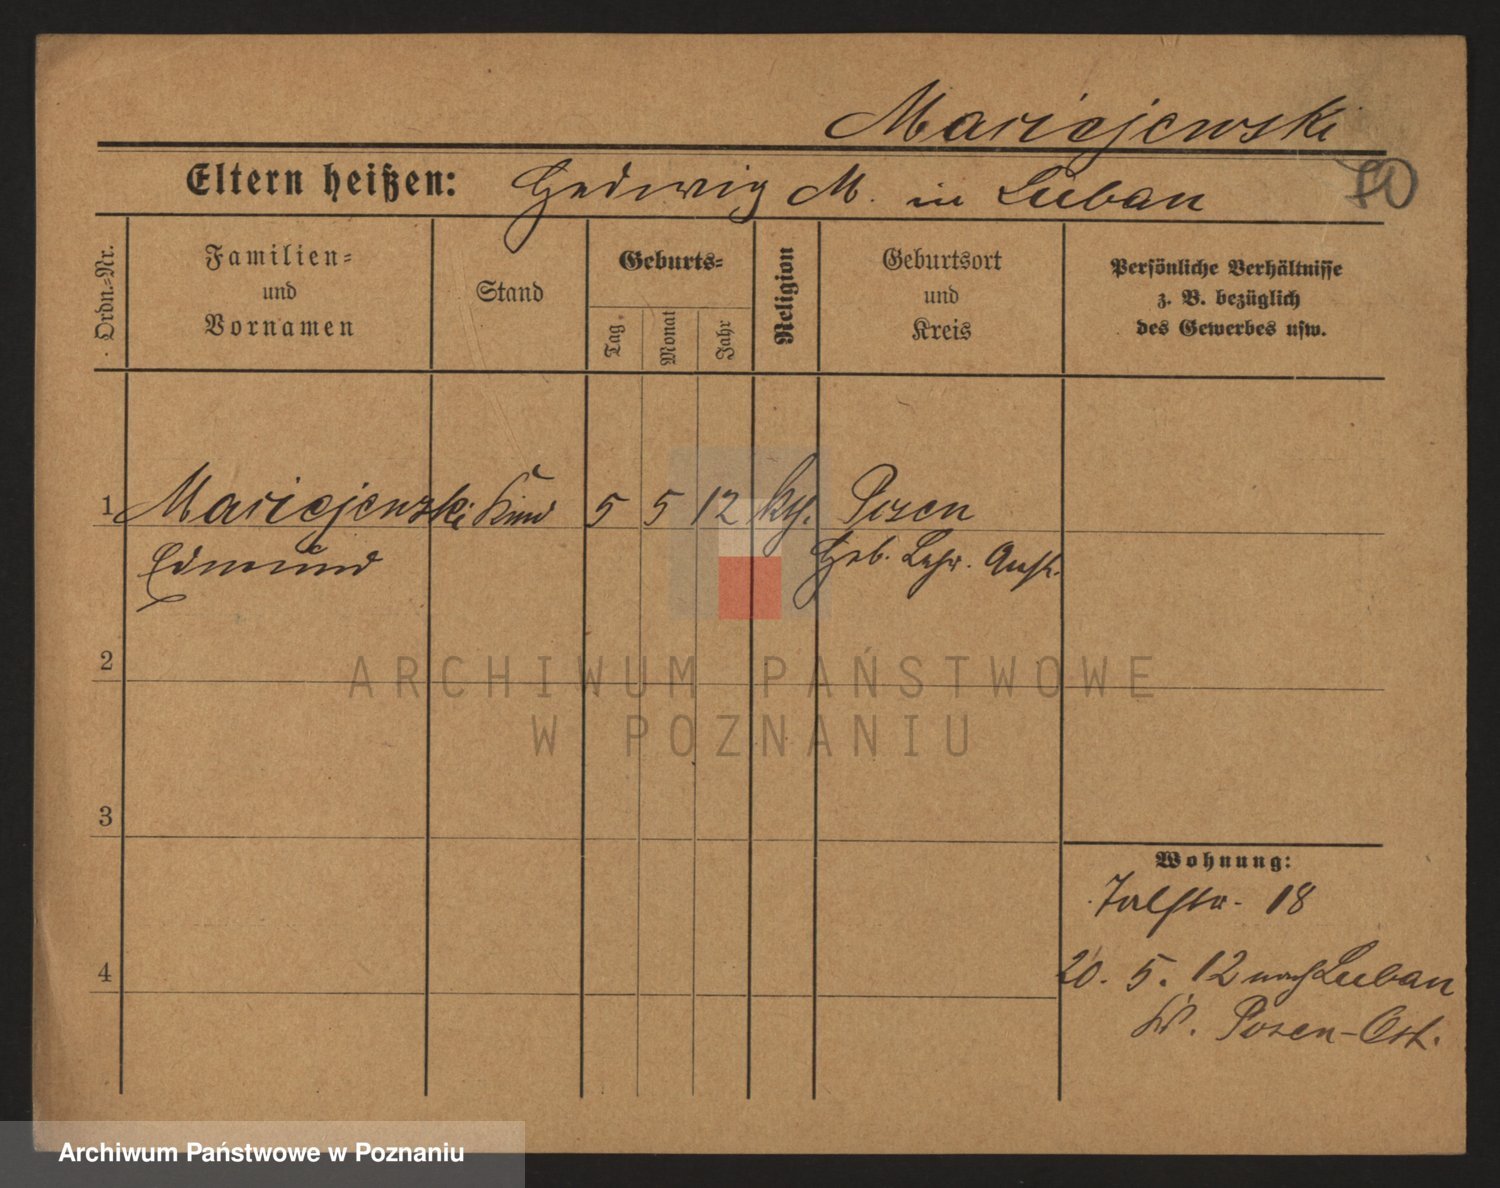 Maricejewski
Eltern heißen: Hedwig M. in Luban
Ordn.-Nr.
Familien-
und
Vornamen
Stand
Geburts-
Tag
Monat
Jahr
Religion
Geburtsort
und
Kreis
Persönliche Verhältnisse
z. B. bezüglich
des Gewerbes usw.
1 Maricejewski Kind 5 5 12 kth. Posen
Edmund Heb. Lehr. Anst.
2
ARCHIWUM PAŃSTWOWE
W POZNANIU
3
Wohnung:
Talstr. 18
4
20. 5. 12 nach Luban
Kr. Posen-Ost.
Archiwum Państwowe w Poznaniu